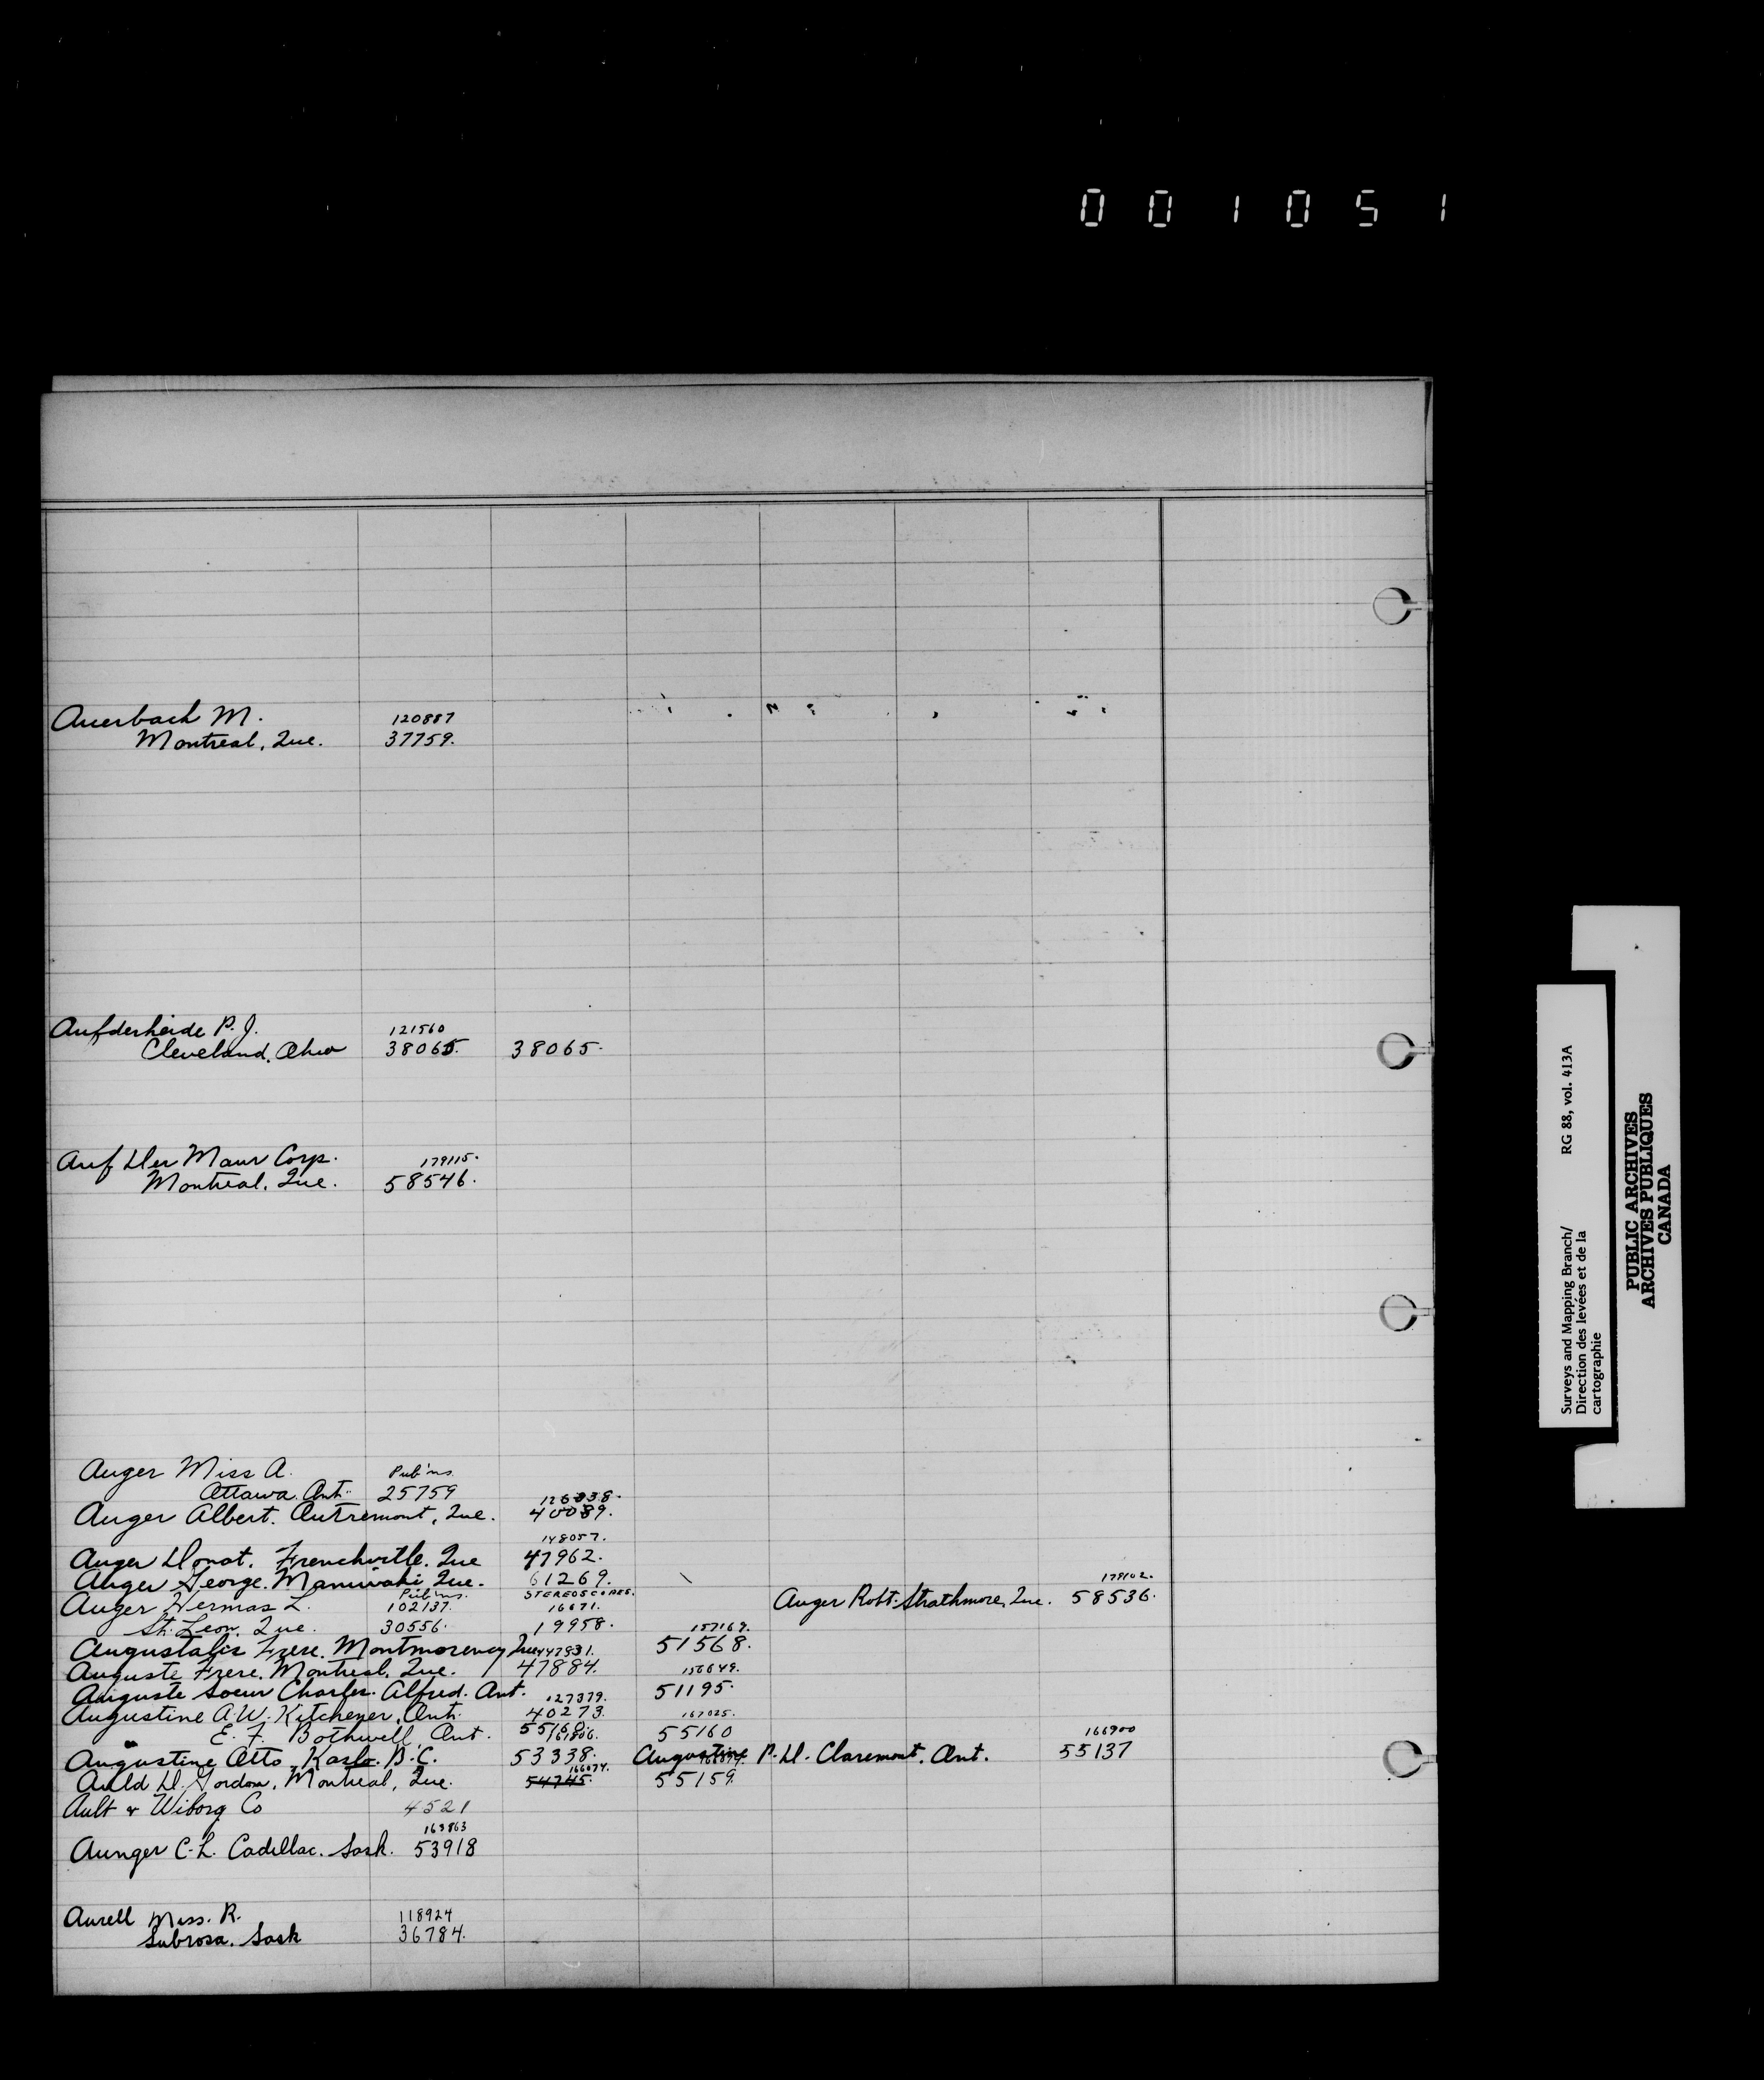 001051
Auerbach M. 120887
Montreal, Que. 37759.
Aufderheide P. J. 121560
Cleveland, Ohio 38065. 38065.
Auf Der Maur Corp. 179115.
Montreal, Que. 58546.
Auger Miss A. Pub'ns.
Ottawa. Ont. 25759
126038.
Auger Albert. Outremont, Que. 40089.
148057.
Auger Donat. Frenchville. Que 47962.
Auger George. Maniwaki Que. 61269.
Pub'ns. STEREOSCOPES. 179102.
Auger Hermas L. 102137. 16671. Auger Robt. Strathmore, Que. 58536.
St. Leon, Que. 30556. 19958. 157169.
Augustalis Frere. Montmorency Que 147931. 51568.
Auguste Frere. Montreal, Que. 47884. 156649.
Auguste Soeur Charles. Alfred. Ont. 51195.
127379.
Augustine A. W. Kitchener, Ont. 40273. 167025.
E. F. Bothwell, Ont. 55160. 55160 166900
161806.
Augustine Otto, Kaslo. B.C. 53338. Augustine P. D. Claremont. Ont. 55137
166074.
Auld D. Gordon, Montreal, Que. 54745. 55159.
Ault & Wiborg Co 4521
163863
Aunger C. L. Cadillac. Sask. 53918
Aurell Miss. R. 118924
Subrosa. Sask 36784.
Surveys and Mapping Branch/ RG 88, vol. 413A
Direction des levées et de la
cartographie
PUBLIC ARCHIVES
ARCHIVES PUBLIQUES
CANADA